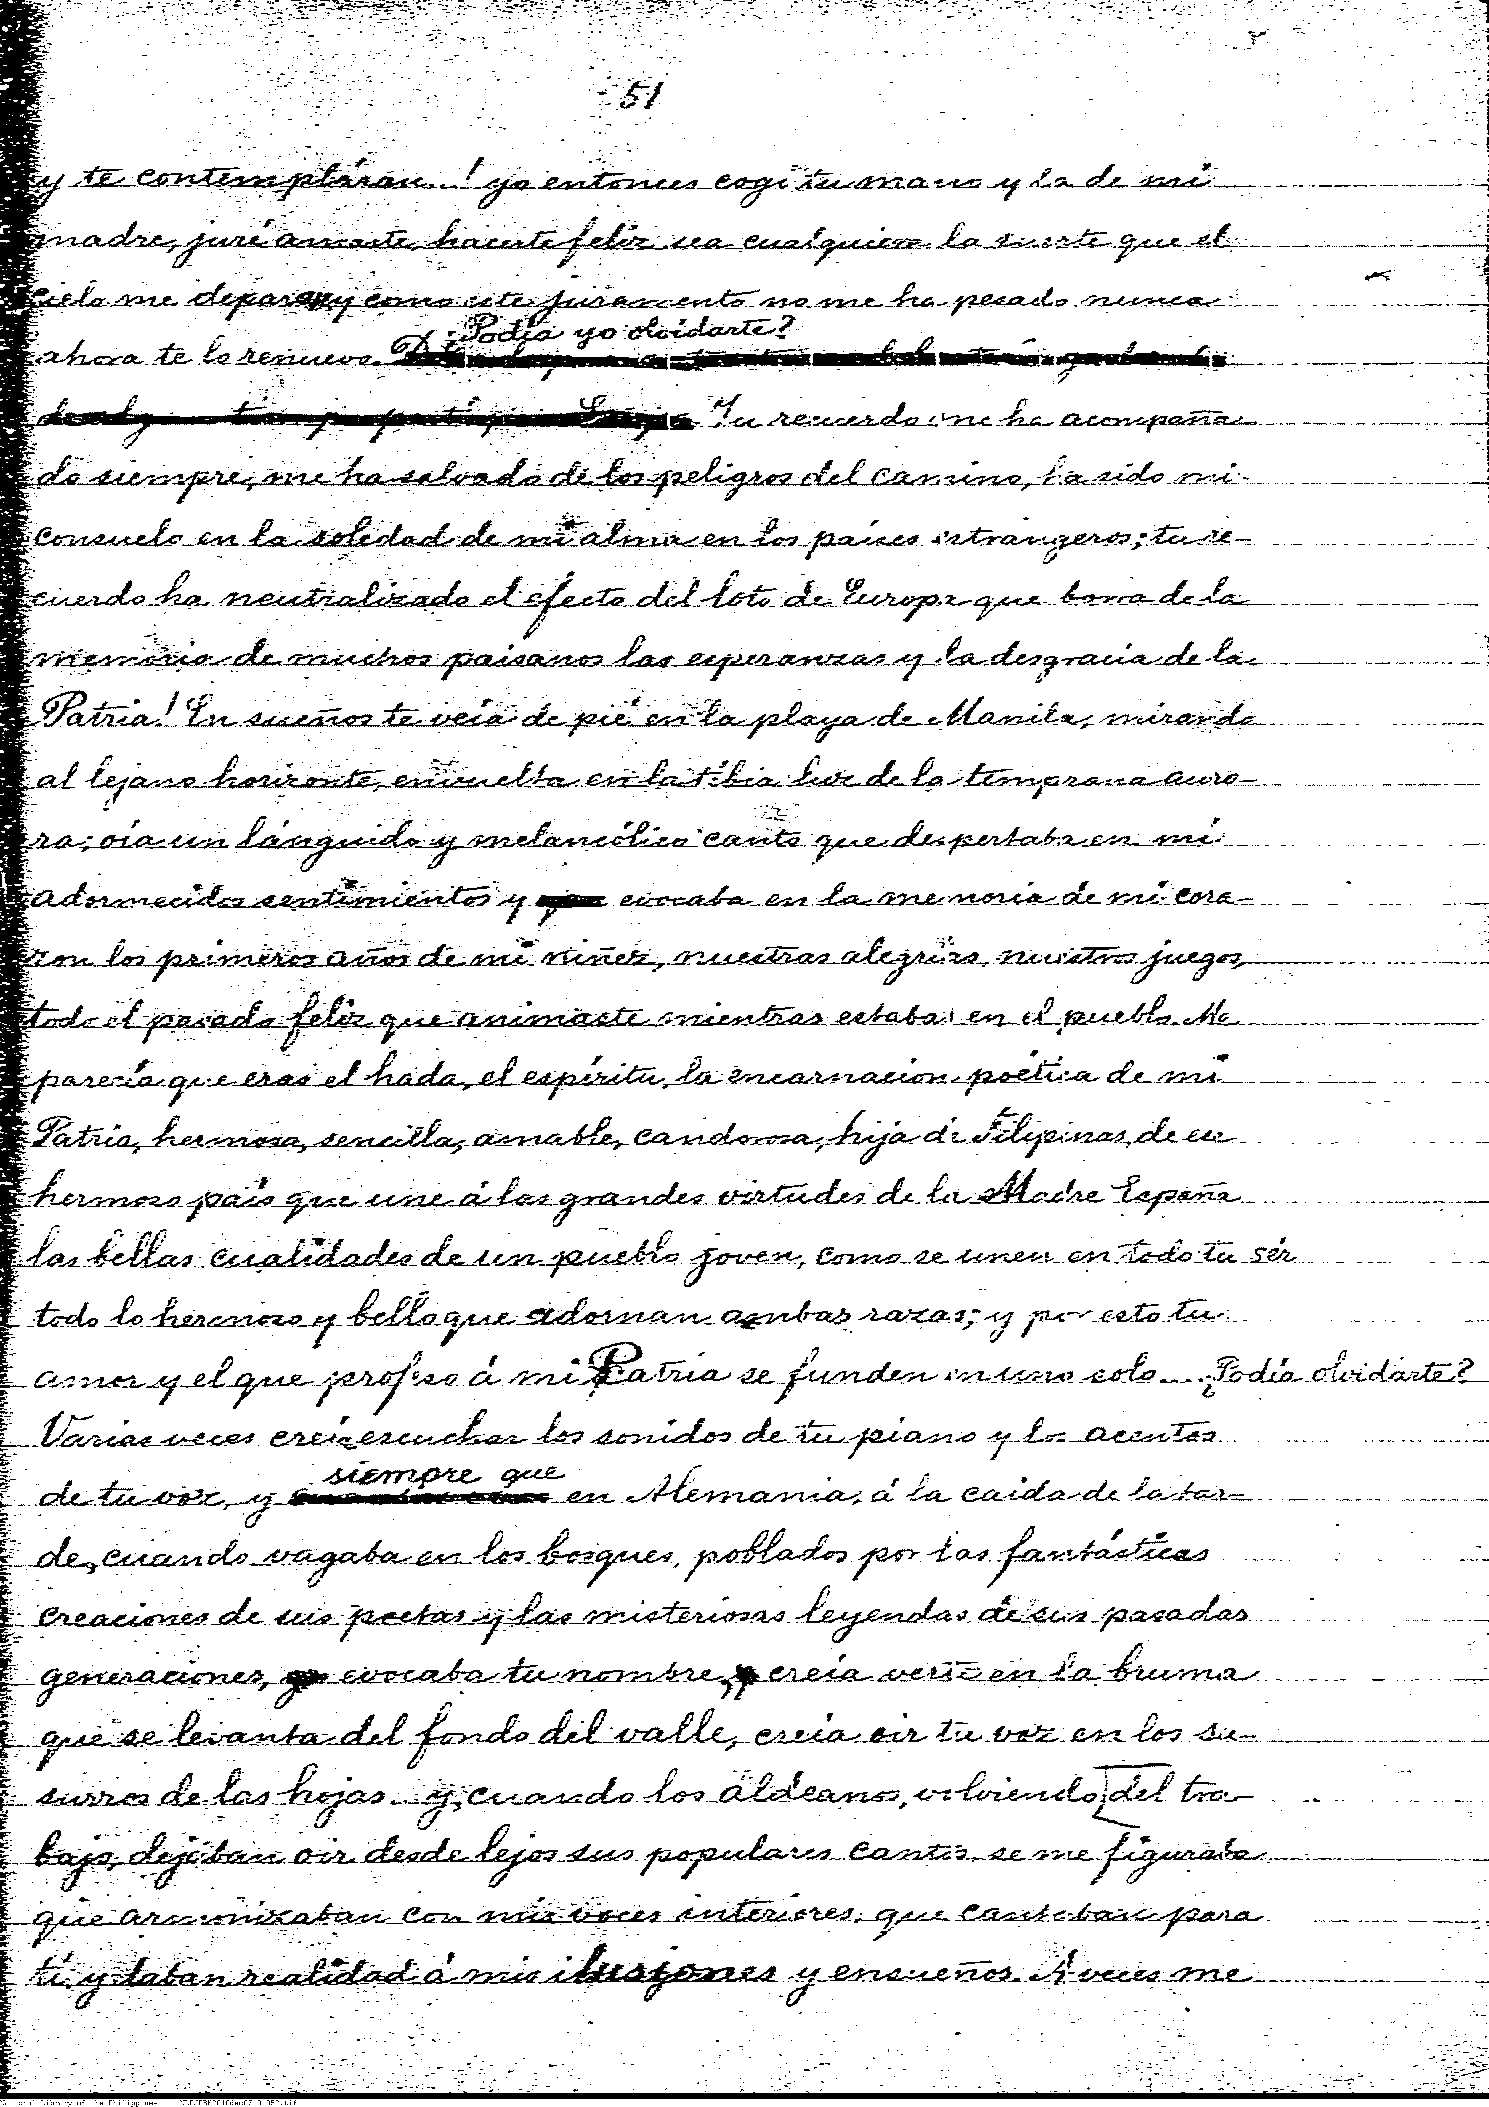 51
y te contemplaran...! yo entonces cogí tu mano y la de mi
madre, juré amarte, hacerte feliz sea cualquiera la suerte que el
cielo me deparara y como este juramento no me ha pesado nunca
¿Podía yo olvidarte?
ahora te lo renuevo.
Tu recuerdo me ha acompaña-
do siempre, me ha salvado de los peligros del camino, ha sido mi
consuelo en la soledad de mi alma en los países estrangeros; tu re-
cuerdo ha neutralizado el efecto del loto de Europa que borra de la
memoria de muchos paisanos las esperanzas y la desgracia de la
Patria! En sueños te veía de pié en la playa de Manila, mirando
al lejano horizonte, envuelta en la tibia luz de la temprana auro-
ra; oía un lánguido y melancólico canto que despertaba en mí
adormecidos sentimientos y evocaba en la memoria de mi cora-
zon los primeros años de mi niñez, nuestras alegrías, nuestros juegos,
todo el pasado feliz que animaste mientras estabas en el pueblo. Me
parecía que eras el hada, el espíritu, la encarnacion poética de mi
Patria, hermosa, sencilla, amable, candorosa, hija de Filipinas, de ese
hermoso país que une á las grandes virtudes de la Madre España
las bellas cualidades de un pueblo joven, como se unen en todo tu sér
todo lo hermoso y bello que adornan ambas razas; y por esto tu
amor y el que profeso á mi Patria se funden en uno solo... ¿Podía olvidarte?
Varias veces creía escuchar los sonidos de tu piano y los acentos
siempre que
de tu voz, y en Alemania, á la caida de la tar-
de, cuando vagaba en los bosques, poblados por las fantásticas
creaciones de sus poetas y las misteriosas leyendas de sus pasadas
generaciones, evocaba tu nombre, creia verte en la bruma
que se levanta del fondo del valle, creia oir tu voz en los su-
surros de las hojas. y, cuando los aldeanos, volviendo del tra-
bajo, dejaban oir desde lejos sus populares cantos se me figuraba
que armonizaban con mis voces interiores, que cantaban para
tí y daban realidad á mis ilusiones y ensueños. A veces me